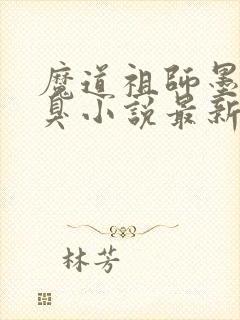 魔道祖師墨
臭小説最新
林芳